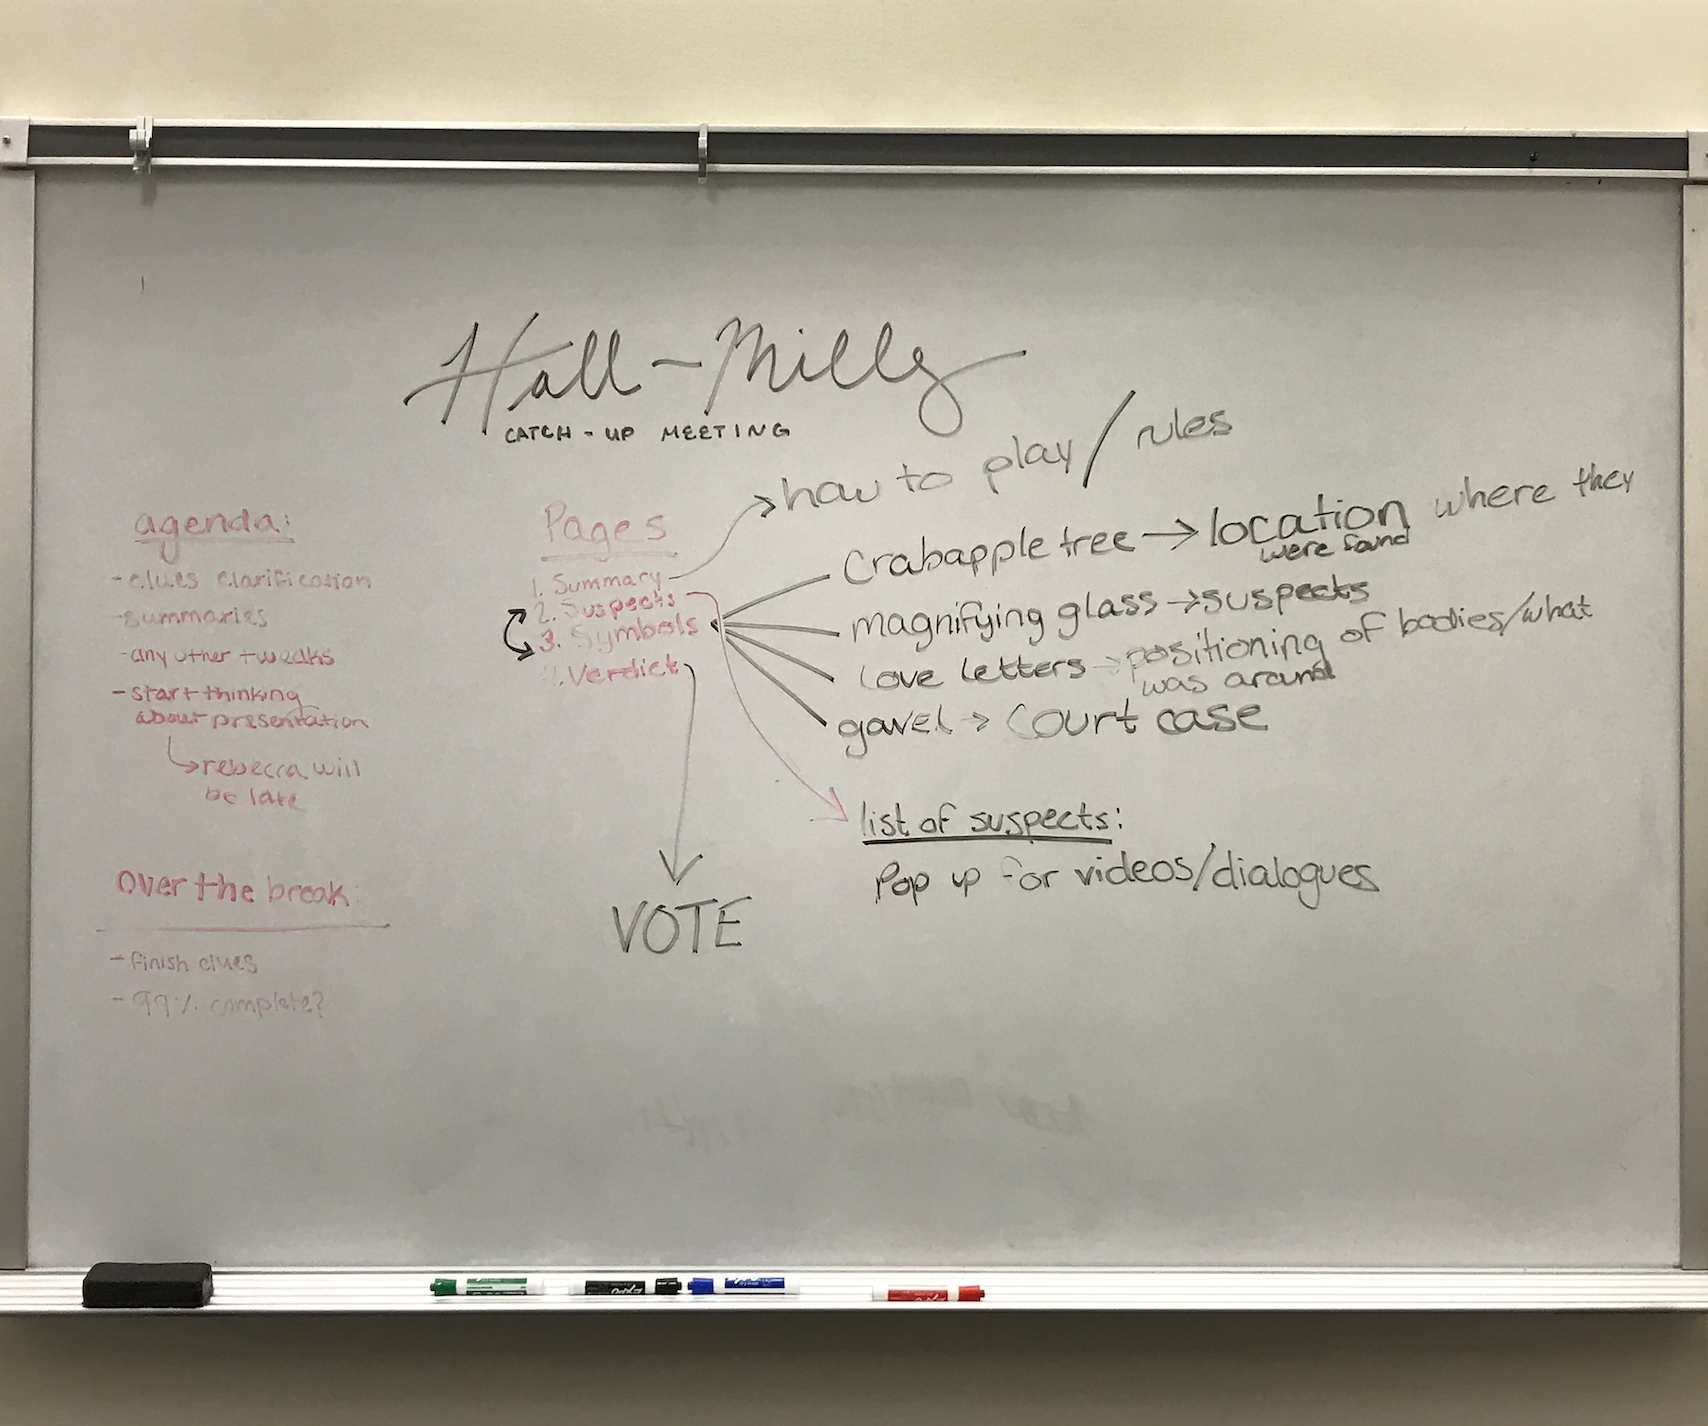 Hall-Mills
CATCH-UP MEETING
agenda:
- clues clarification
- summaries
- any other tweaks
- start thinking
about presentation
rebecca will
be late
Over the break:
- finish clues
- 99% complete?
Pages
1. Summary
2. Suspects
3. Symbols
4. Verdict
how to play / rules
Crabapple tree → location where they
were found
magnifying glass → suspects
love letters → positioning of bodies/what
was around
gavel → court case
list of suspects:
Pop up for videos/dialogues
VOTE
EXPO